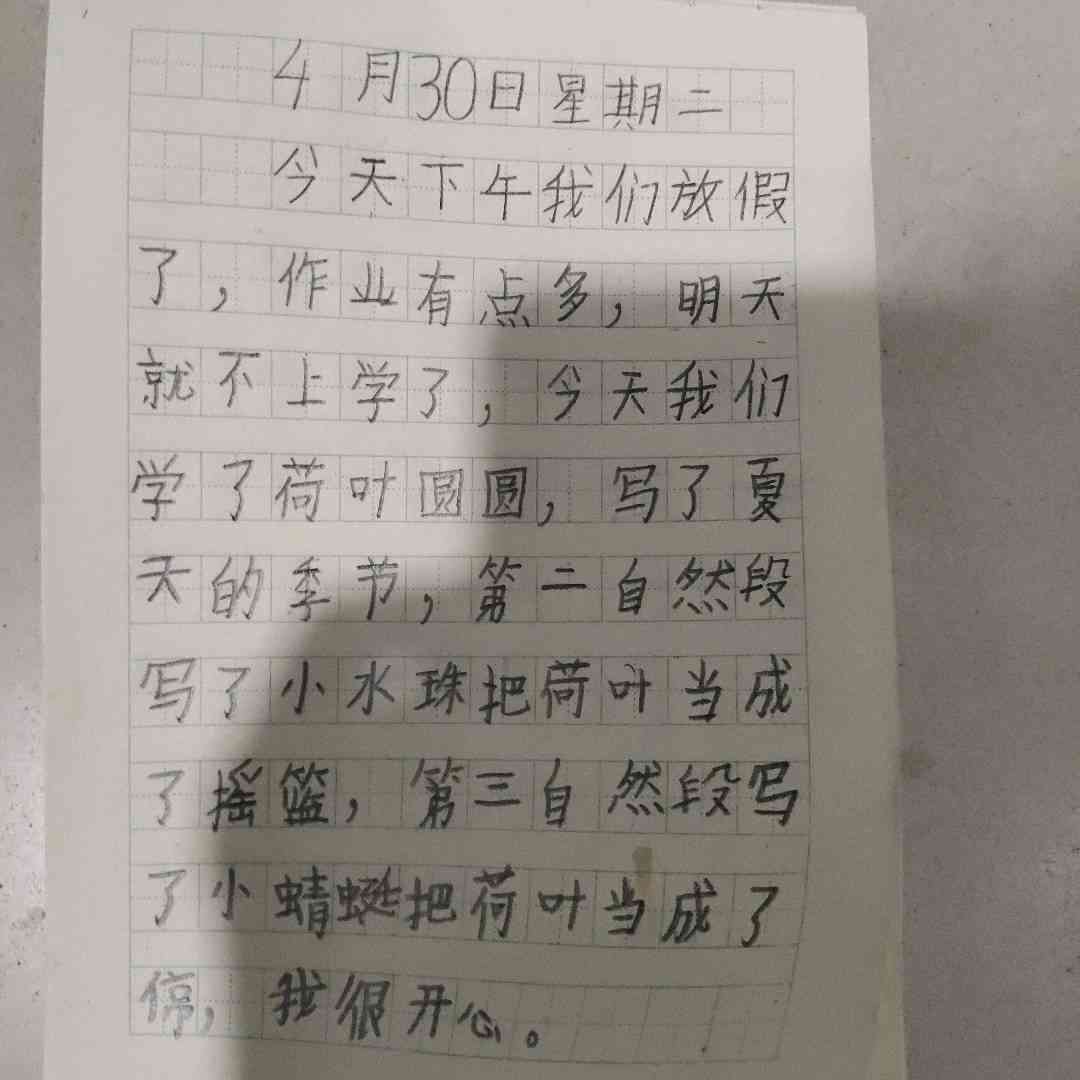 4月30日星期二
今天下午我们放假
了，作业有点多，明天
就不上学了，今天我们
学了荷叶圆圆，写了夏
天的季节，第二自然段
写了小水珠把荷叶当成
了摇篮，第三自然段写
了小蜻蜓把荷叶当成了
停，我很开心。